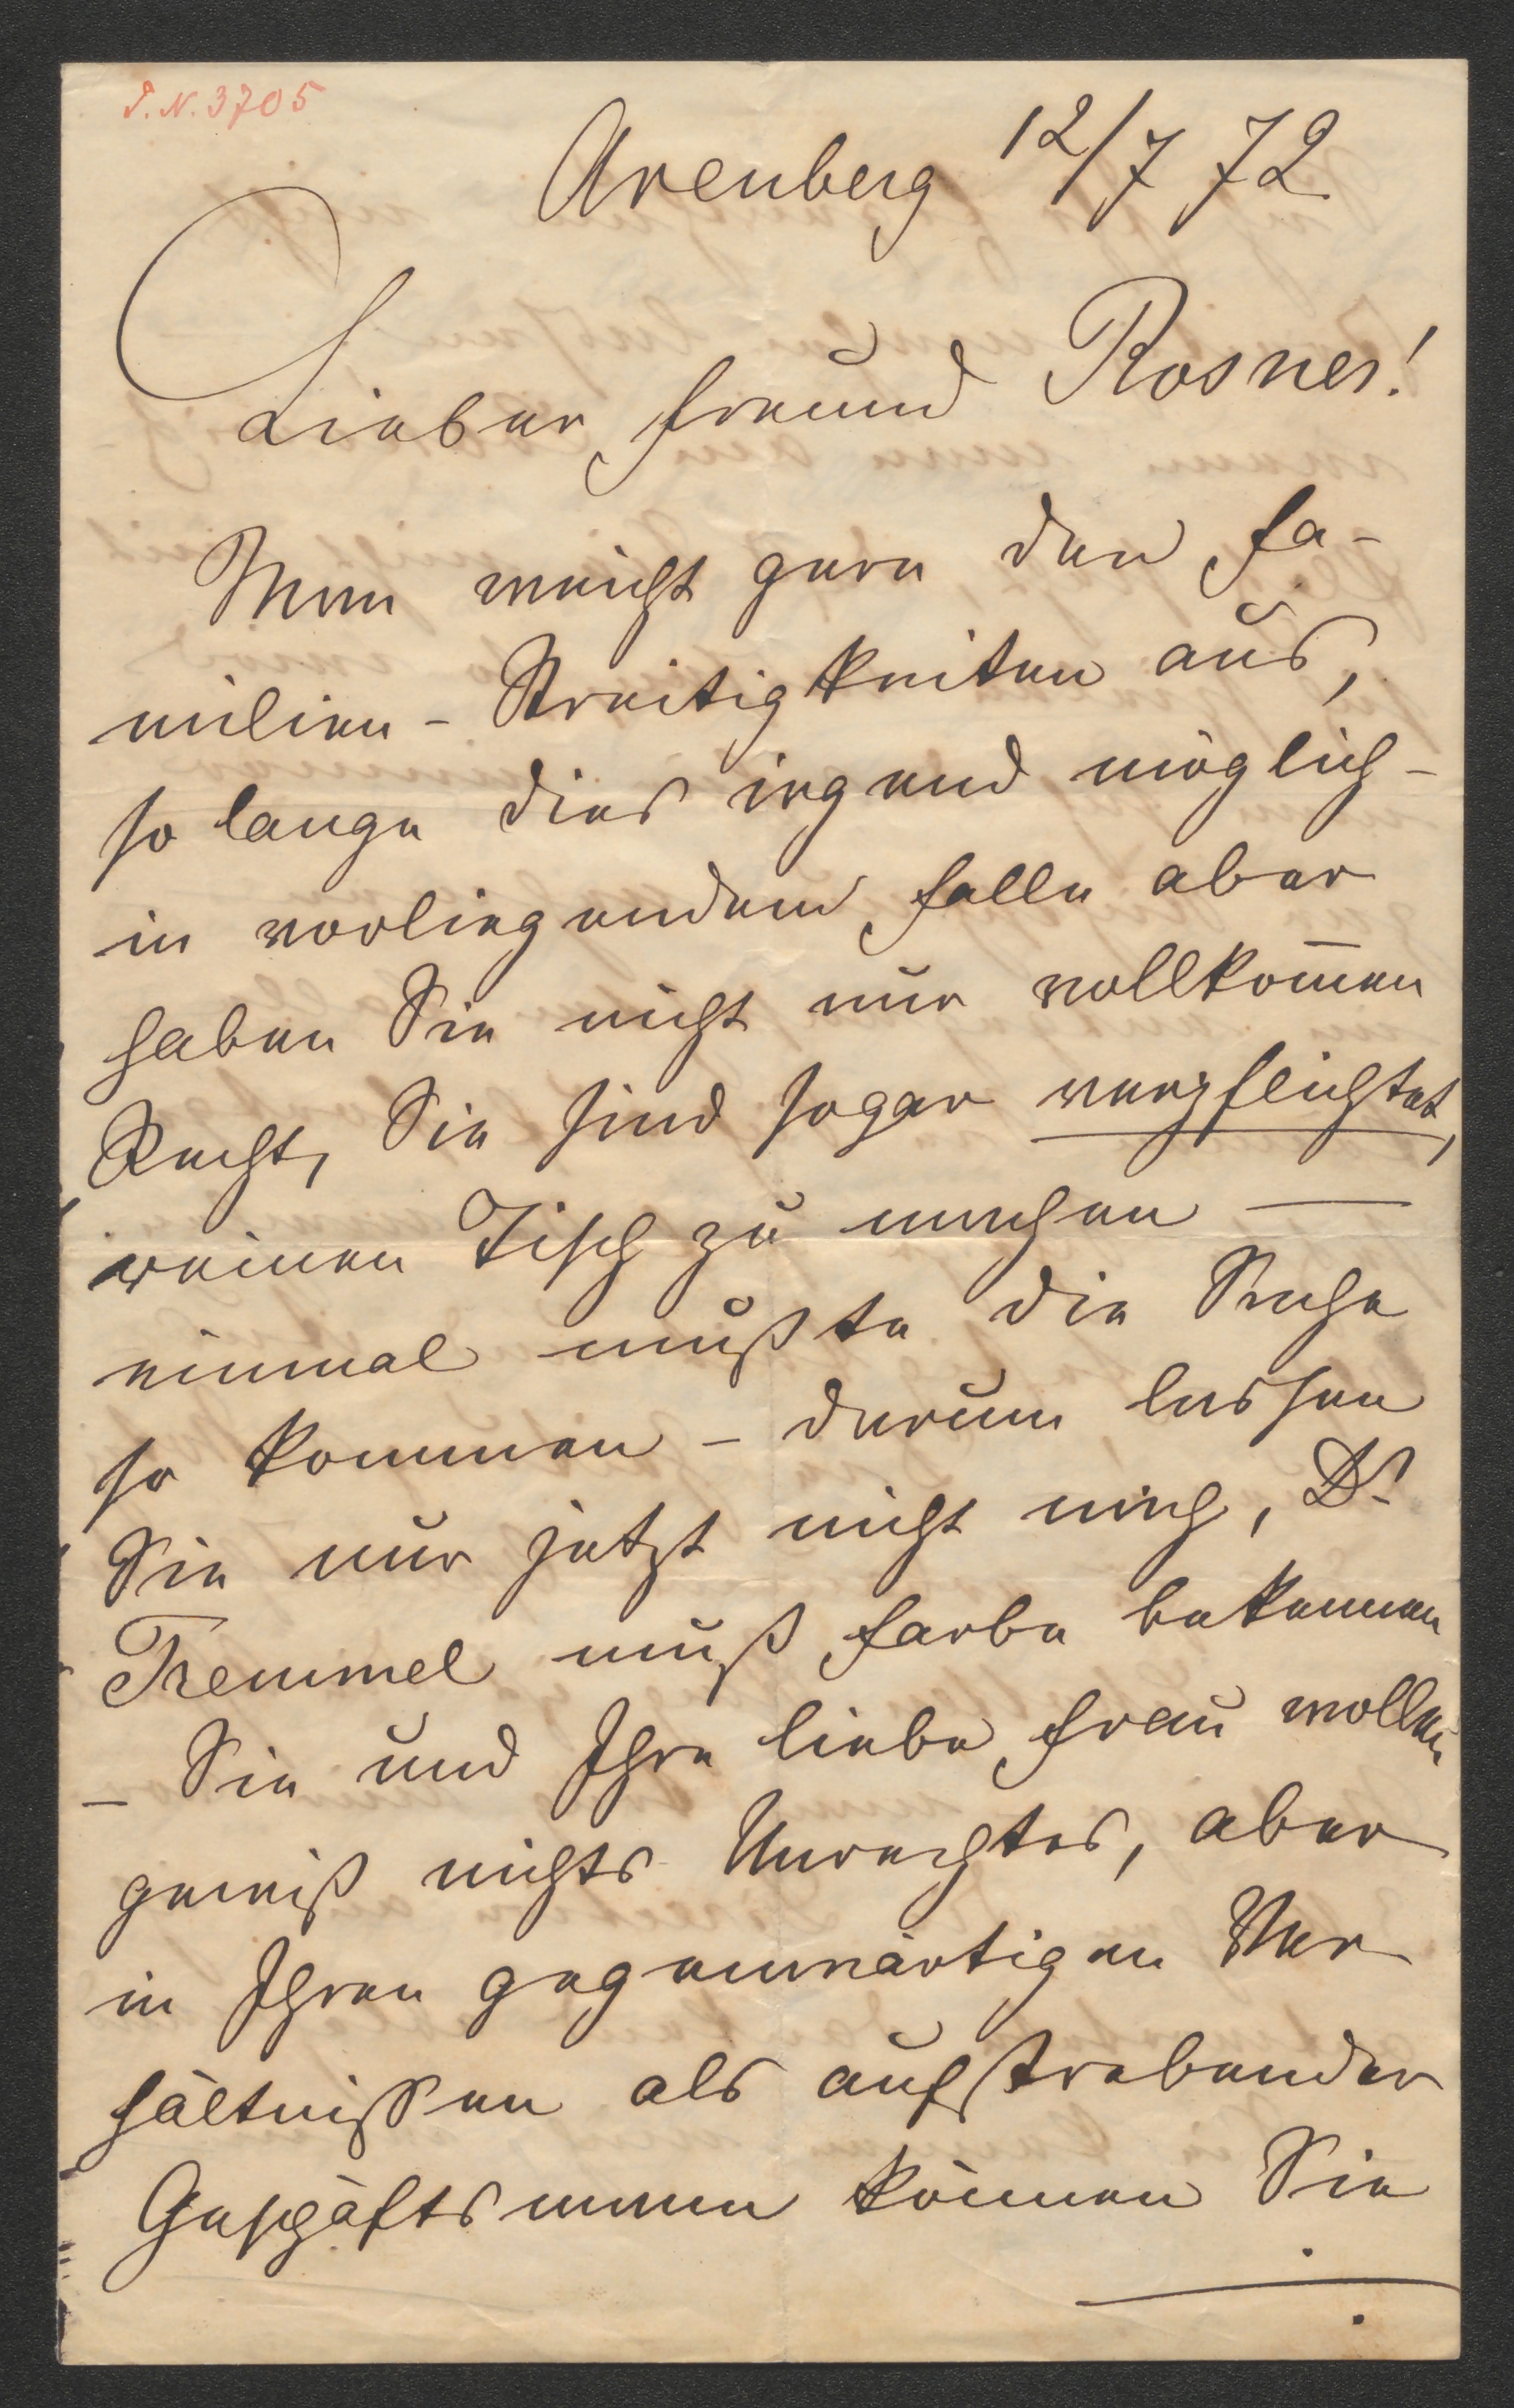 I.N. 3705
Arenberg 12/7 72
Lieber Freund Rosner!
Man weicht gern den Fa-
milien-Streitigkeiten aus,
so lange dies irgend möglich -
in vorliegendem Falle aber
haben Sie nicht nur vollkom̄en
Recht, Sie sind sogar verpflichtet,
reinen Tisch zu machen —
einmal mußte die Sache
so kommen - darum lassen
Sie nur jetzt nicht nach, Dr.
Tremmel muß Farbe bekennen
- Sie und Ihre liebe Frau wollen
gewiß nichts Unrechtes, aber
in Ihren gegenwärtigen Ver
hältnißen als aufstrebender
Geschäftsmann können Sie